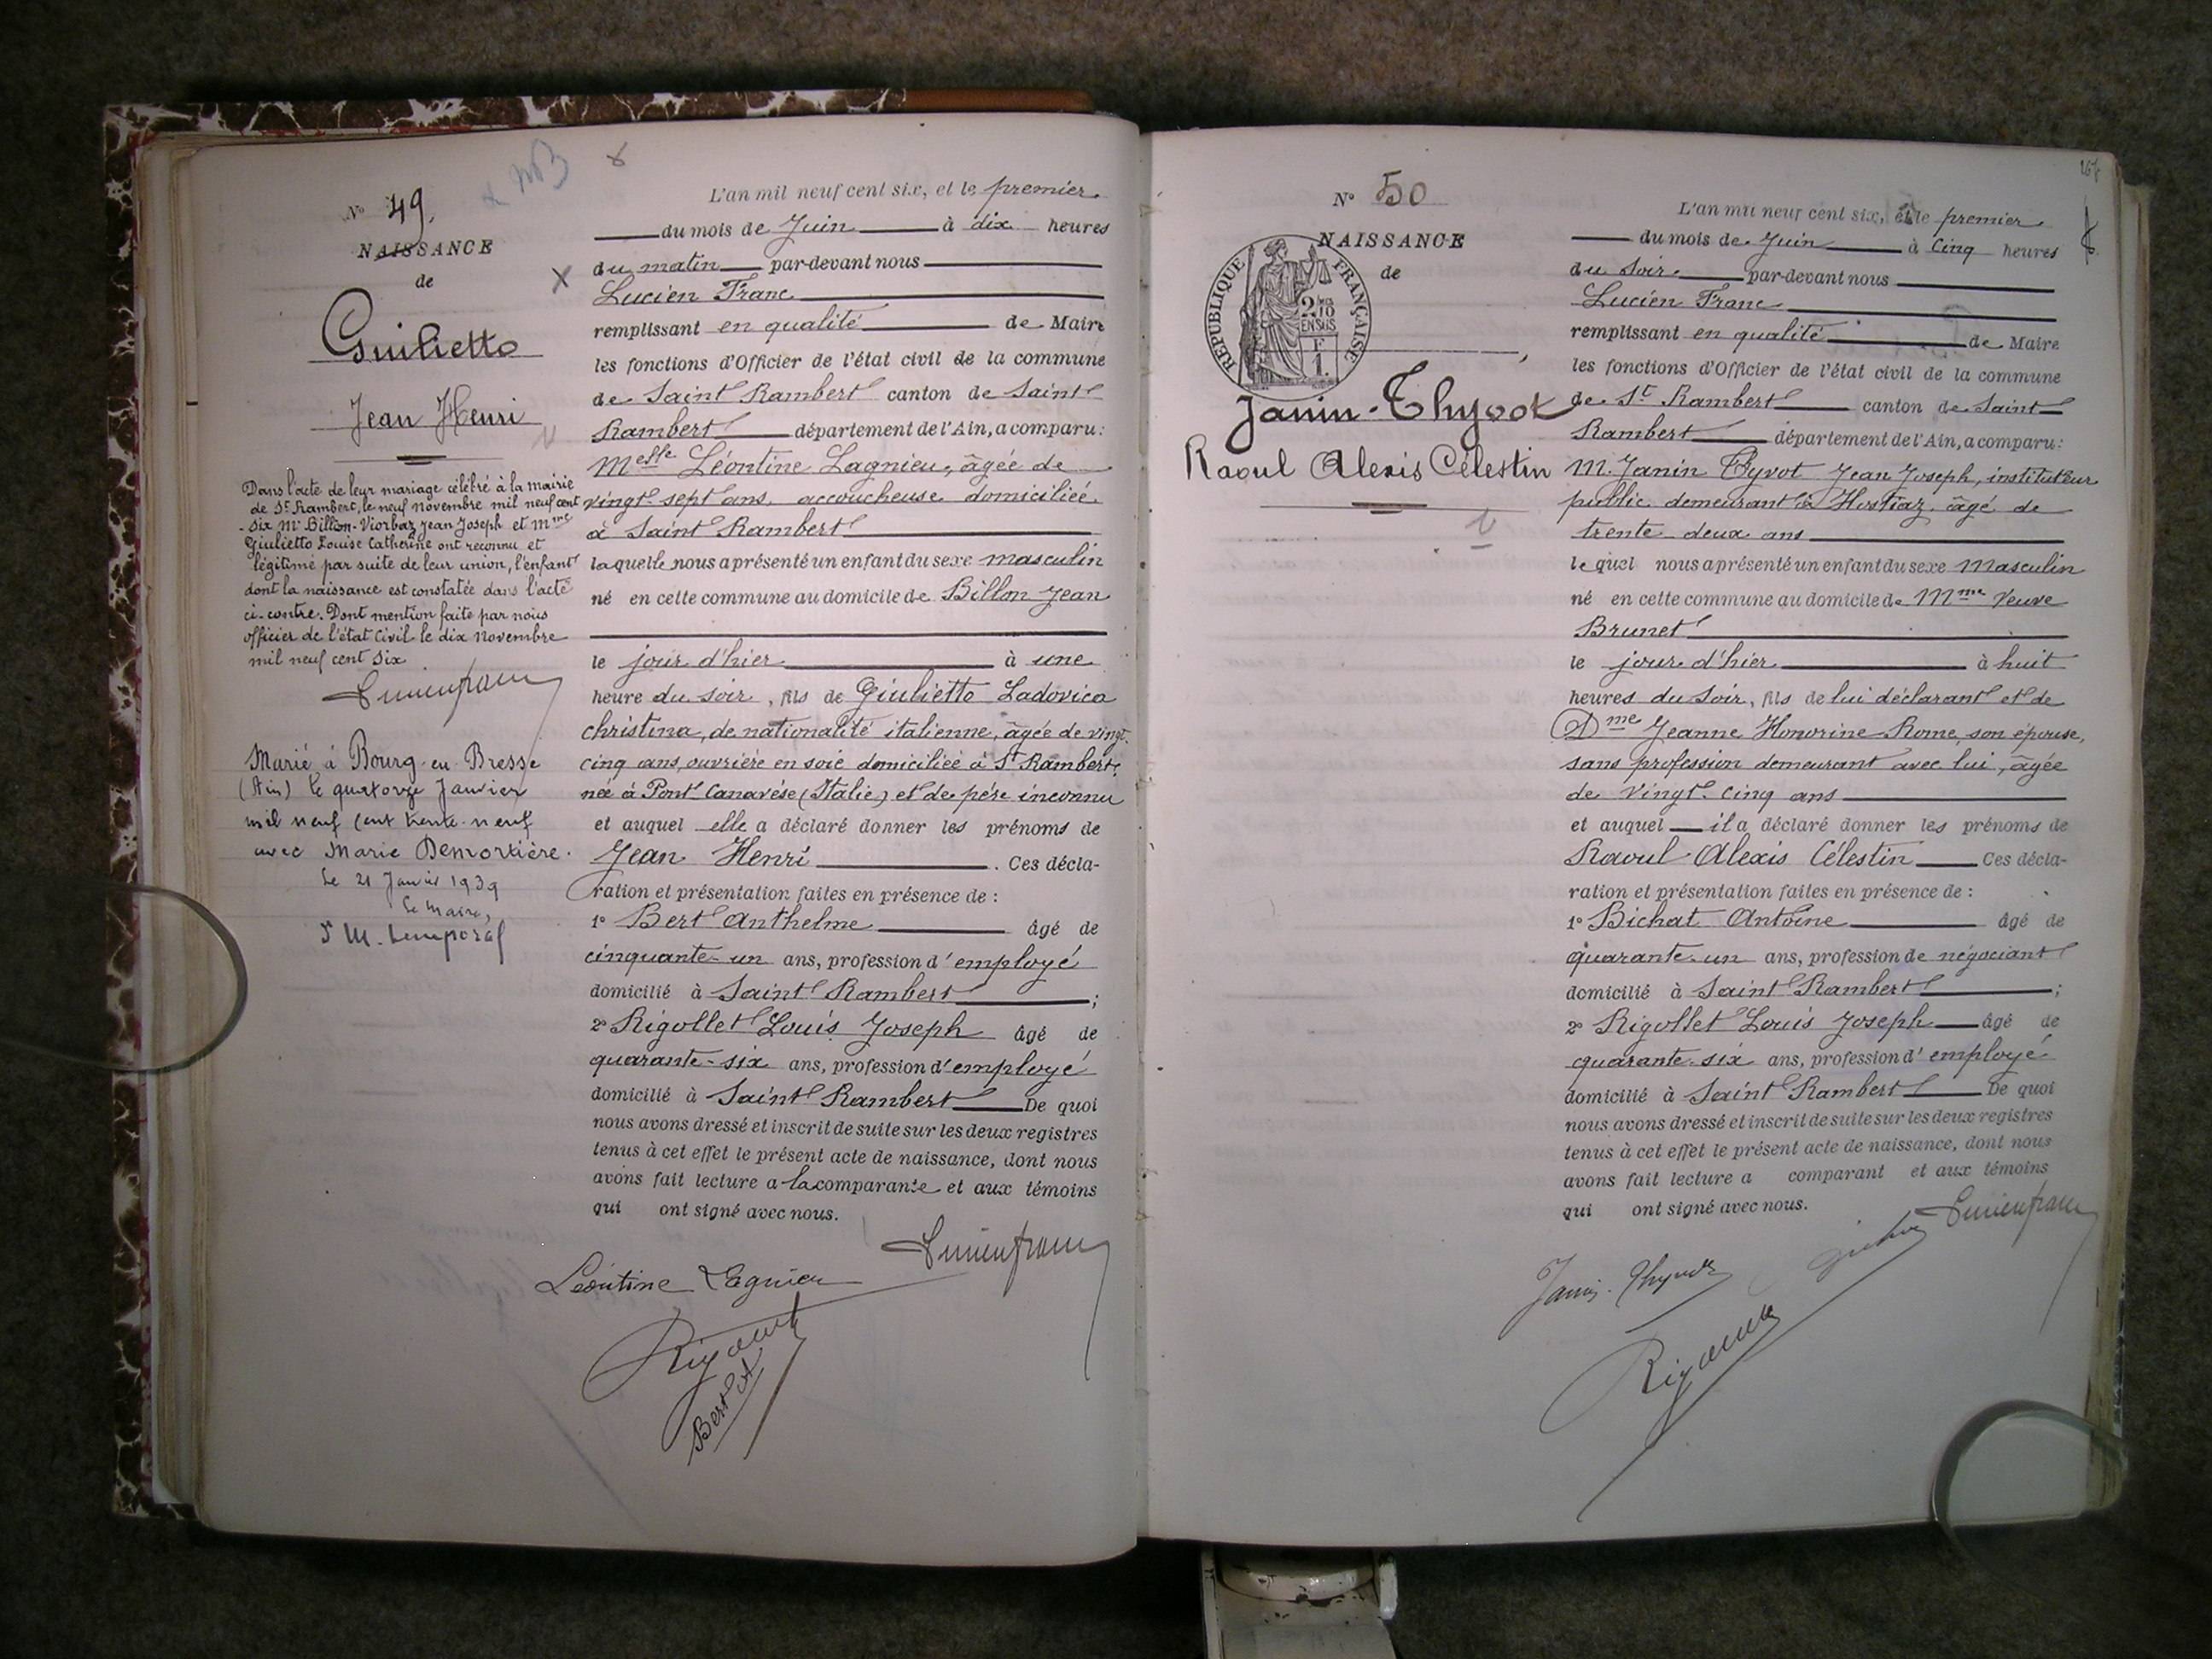 x MB x
N° 49.
NAISSANCE
de
Guilietto
Jean Henri
Dans l'acte de leur mariage célébré à la mairie
de St Rambert, le neuf novembre mil neuf cent
six Mr Billon-Viorbaz Jean Joseph et Mme
Giulietto Louise Catherine ont reconnu et
légitimé par suite de leur union, l'enfant
dont la naissance est constatée dans l'acte
ci-contre. Dont mention faite par nous
officier de l'état civil le dix novembre
mil neuf cent six
Lucien franc
Marié à Bourg-en-Bresse
(Ain) le quatorze Janvier
mil neuf cent trente-neuf
avec Marie Demortière.
Le 21 Janvier 1939
Le Maire,
L'an mil neuf cent six, et le premier
du mois de Juin à dix heures
du matin par-devant nous
Lucien Franc
remplissant en qualité de Maire
les fonctions d'Officier de l'état civil de la commune
de Saint Rambert canton de Saint
Rambert département de l'Ain, a comparu:
Melle Léontine Lagnieu, âgée de
vingt-sept ans, accoucheuse domiciliée
à Saint Rambert
laquelle nous a présenté un enfant du sexe masculin
né en cette commune au domicile de Billon Jean
le jour d'hier à une
heure du soir, fils de Giulietto Ladovica
christina, de nationalité italienne, âgée de vingt-
cinq ans, ouvrière en soie domiciliée à St Rambert,
née à Pont Canavése (Italie) et de père inconnu
et auquel elle a déclaré donner les prénoms de
Jean Henri. Ces décla-
ration et présentation faites en présence de :
1° Bert Anthelme âgé de
cinquante-un ans, profession d'employé
domicilié à Saint Rambert ;
2° Rigollet Louis Joseph âgé de
quarante-six ans, profession d'employé
domicilié à Saint Rambert De quoi
nous avons dressé et inscrit de suite sur les deux registres
tenus à cet effet le présent acte de naissance, dont nous
avons fait lecture a la comparante et aux témoins
qui ont signé avec nous.
Lucien franc
Léontine Lagnieu
Bert At
N° 50
NAISSANCE
de
RÉPUBLIQUE FRANÇAISE
2/10 EN SUS
F 1.
Janin-Thyvot
Raoul Alexis Célestin
L'an mil neuf cent six, et le premier
du mois de Juin à Cinq heures
du soir par-devant nous
Lucien Franc
remplissant en qualité de Maire
les fonctions d'Officier de l'état civil de la commune
de St Rambert canton de Saint
Rambert département de l'Ain, a comparu:
M. Janin Thyvot Jean Joseph, instituteur
public demeurant à Hostiaz, âgé de
trente-deux ans
lequel nous a présenté un enfant du sexe Masculin
né en cette commune au domicile de Mme Veuve
Brunet
le jour d'hier à huit
heures du soir, fils de lui déclarant et de
Dme Jeanne Honorine Rome, son épouse,
sans profession demeurant avec lui, âgée
de vingt-cinq ans
et auquel il a déclaré donner les prénoms de
Raoul Alexis Célestin Ces décla-
ration et présentation faites en présence de :
1° Bichat Antoine âgé de
quarante-un ans, profession de négociant
domicilié à Saint Rambert ;
2° Rigollet Louis Joseph âgé de
quarante-six ans, profession d'employé
domicilié à Saint Rambert De quoi
nous avons dressé et inscrit de suite sur les deux registres
tenus à cet effet le présent acte de naissance, dont nous
avons fait lecture a comparant et aux témoins
qui ont signé avec nous.
Lucien franc
Janin-Thyvot